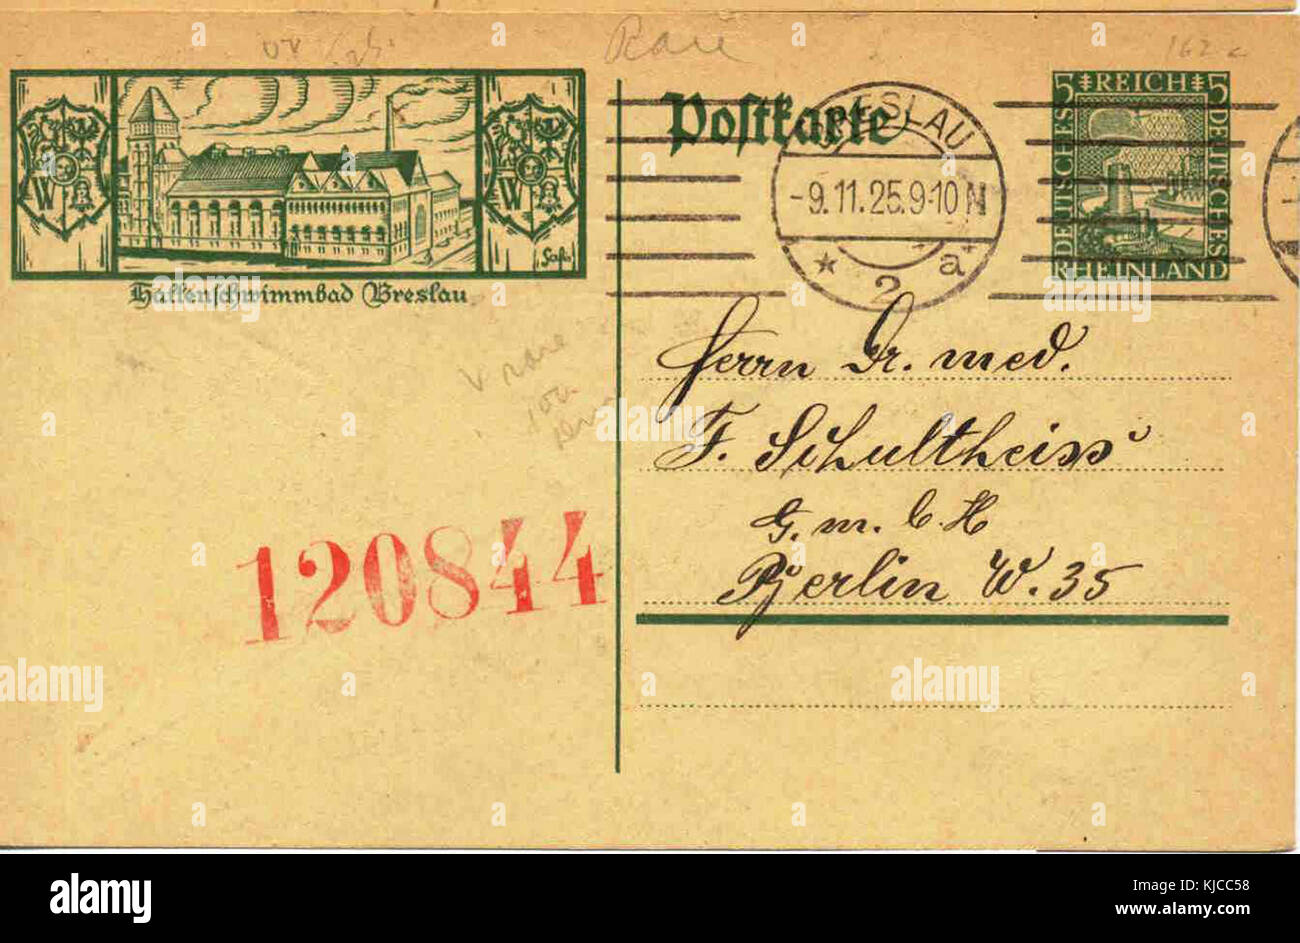 Rare
162 c
5 REICH 5
DEUTSCHES
DEUTSCHES
RHEINLAND
Postkarte
BRESLAU
-9.11.25.9-10 N
* 2 a
W W
Hallenschwimmbad Breslau
rare
Herrn Dr. med.
F. Schultheiss
G. m. b. H
Berlin W. 35
120844
alamy
a
alamy
Image ID: KJCC58
www.alamy.com